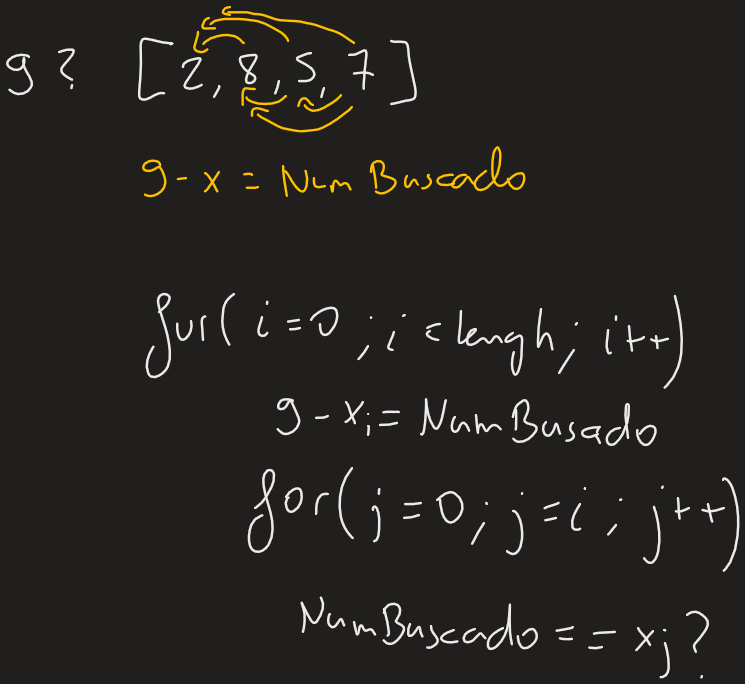 9? [2, 8, 5, 7]
9 - x = Num Buscado
for( i = 0 ; i < lengh ; i++)
9 - xi = NumBusado
for( j = 0 ; j = i ; j++)
NumBuscado == xj ?